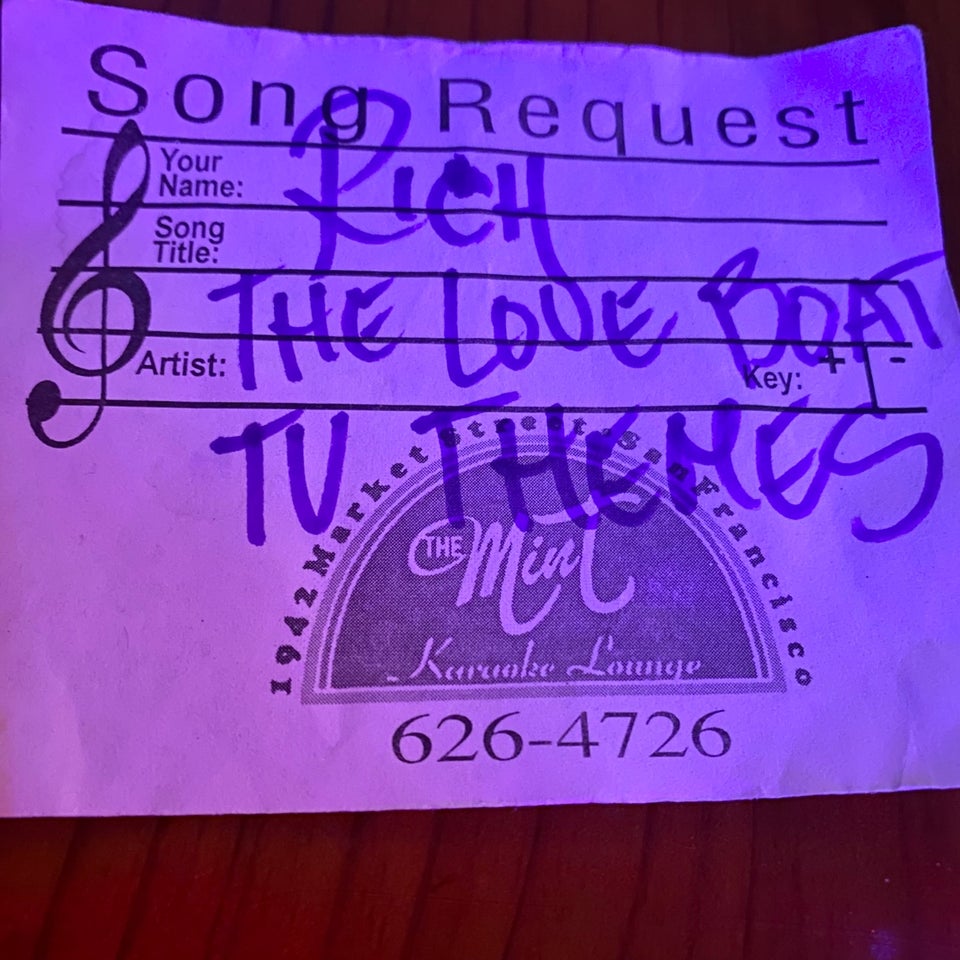 Song Request
Your
Name: RICH
Song
Title: THE LOVE BOAT
Artist: TV THEMES
Key: + -
1942 Market Street San Francisco
THE Mint
Karaoke Lounge
626-4726